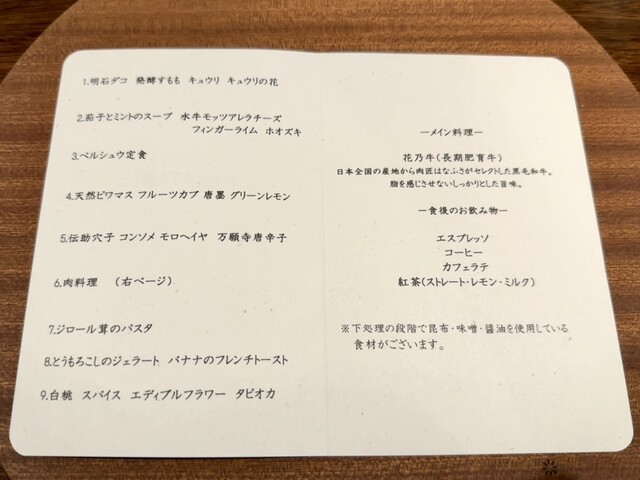 1.明石ダコ 発酵すもも キュウリ キュウリの花
2.茄子とミントのスープ 水牛モッツアレラチーズ
フィンガーライム ホオズキ
3.ペルシュウ定食
4.天然ビワマス フルーツカブ 唐墨 グリーンレモン
5.伝助穴子 コンソメ モロヘイヤ 万願寺唐辛子
6.肉料理 (右ページ)
7.ジロール茸のパスタ
8.とうもろこしのジェラート バナナのフレンチトースト
9.白桃 スパイス エディブルフラワー タピオカ
ーメイン料理ー
花乃牛(長期肥育牛)
日本全国の産地から肉匠はなふさがセレクトした黒毛和牛。
脂を感じさせないしっかりとした旨味。
ー食後のお飲み物ー
エスプレッソ
コーヒー
カフェラテ
紅茶(ストレート・レモン・ミルク)
※下処理の段階で昆布・味噌・醤油を使用している
食材がございます。